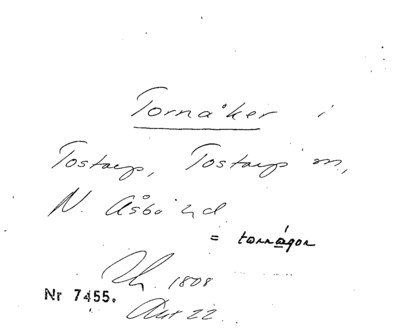 Tornåker i
Tostarp, Tostarp sn,
N. Åsbo hd
= tornågor
1808
Nr 7455.
Akt 22